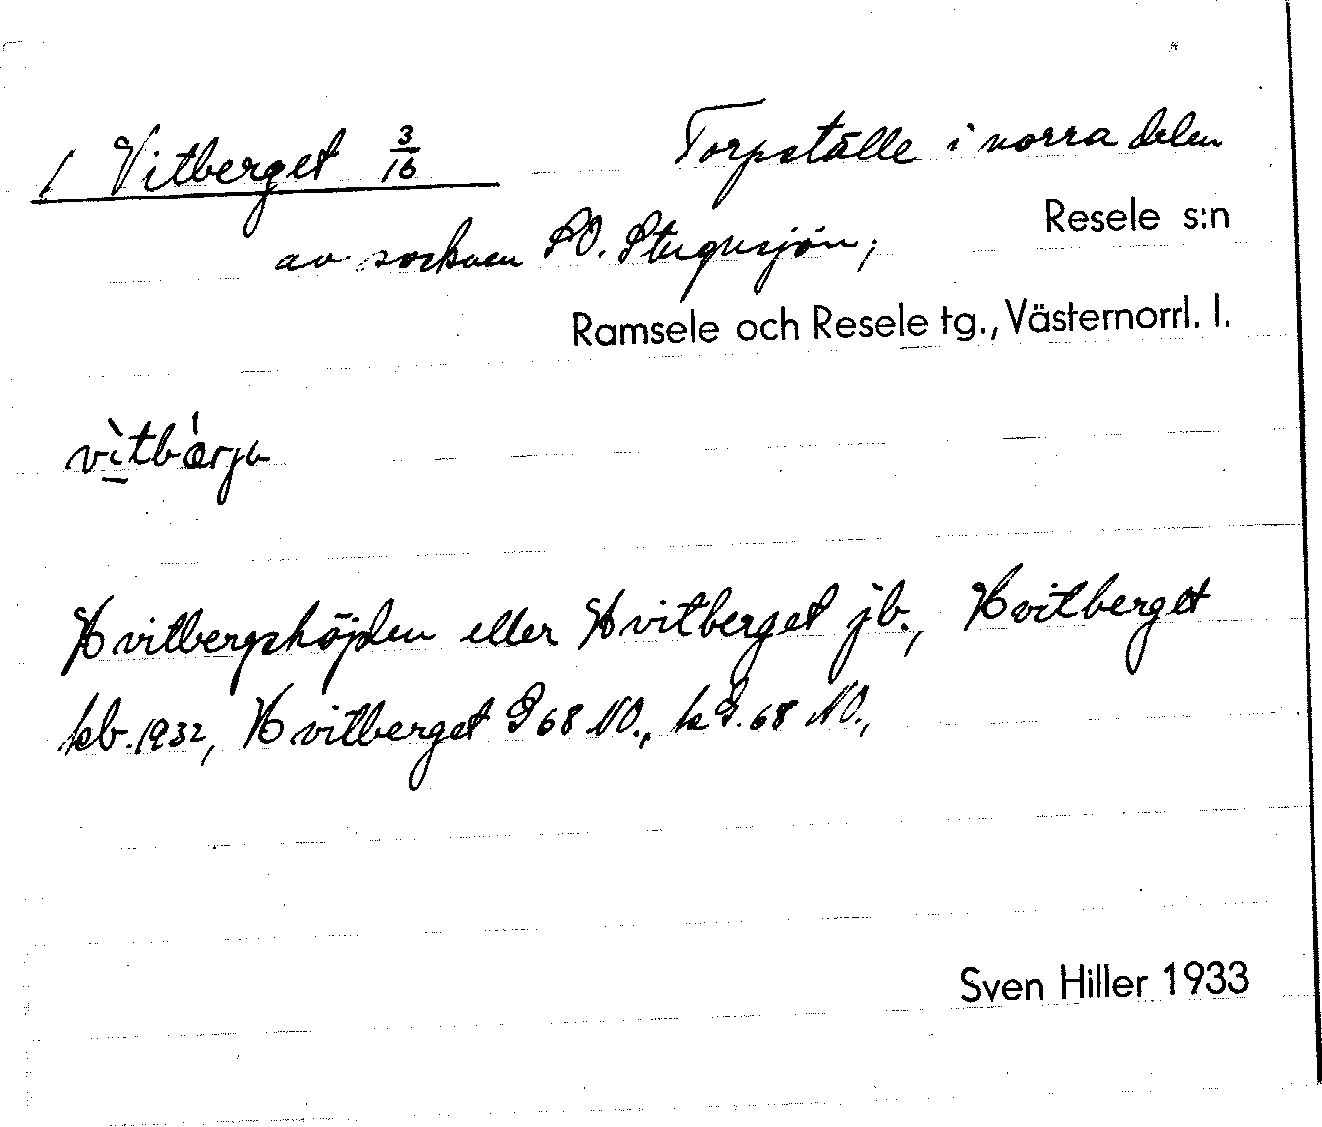 1 Vitberget 3/16 Torpställe i norra delen
Resele s:n
av socknen SO. Stugusjön;
Ramsele och Resele tg., Västernorrl. l.
vìtbárja
Hvitbergshöjden eller Hvitberget jb., Hvitberget
kb. 1932, Hvitberget G 68 NO., k G. 68 NO.,
Sven Hiller 1933